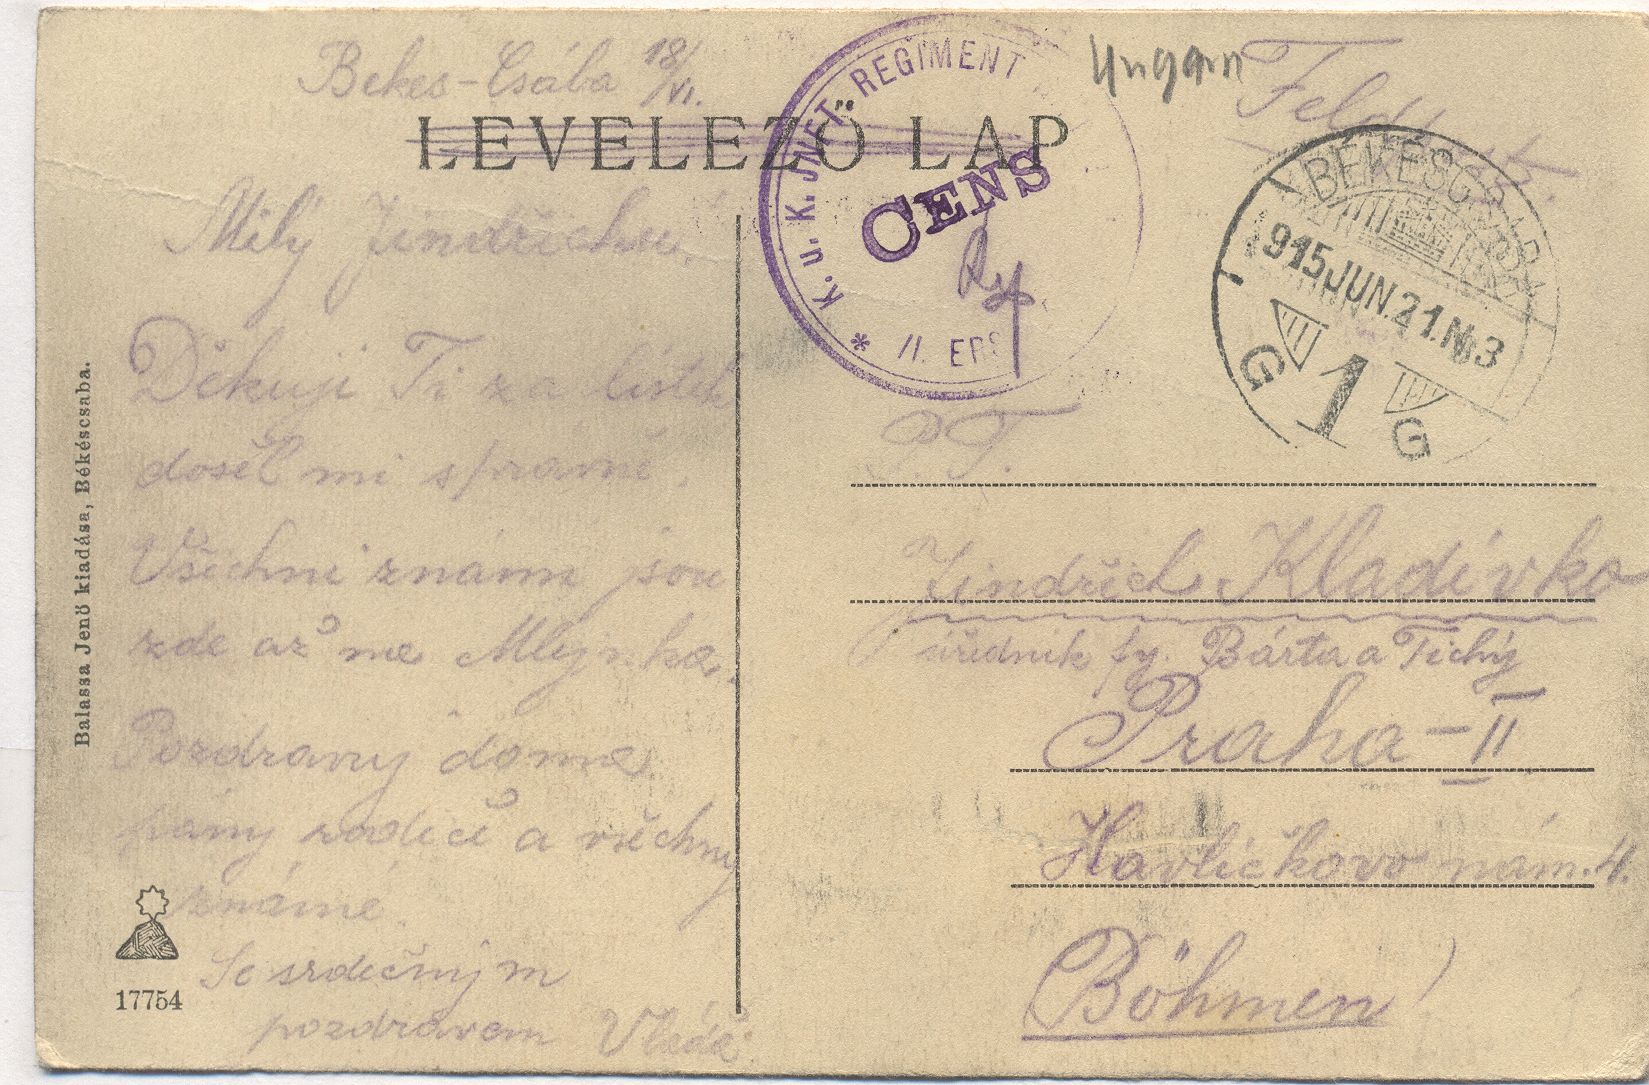 Bekes-Csába 18/VI.
LEVELEZŐ LAP
Milý Jindřichu!
Děkuji Ti za lístek
došel mi správně.
Všichni známí jsou
zde až na Mlejnka.
Pozdravuj doma
pány rodiče a všechny
známé.
Se srdečným
pozdravem Vláďa
Balassa Jenő kiadása, Békéscsaba.
17754
* K. u. K. JNFT. REGIMENT
CENS
II. ERS
Ungarn
Feldpost.
BÉKÉSCSABA
915 JUN. 21. N. 3
G 1 G
P. T.
Jindřich Kladívko
úředník fy. Bárta a Tichý
Praha-II
Havlíčkovo nám. 4.
Böhmen!